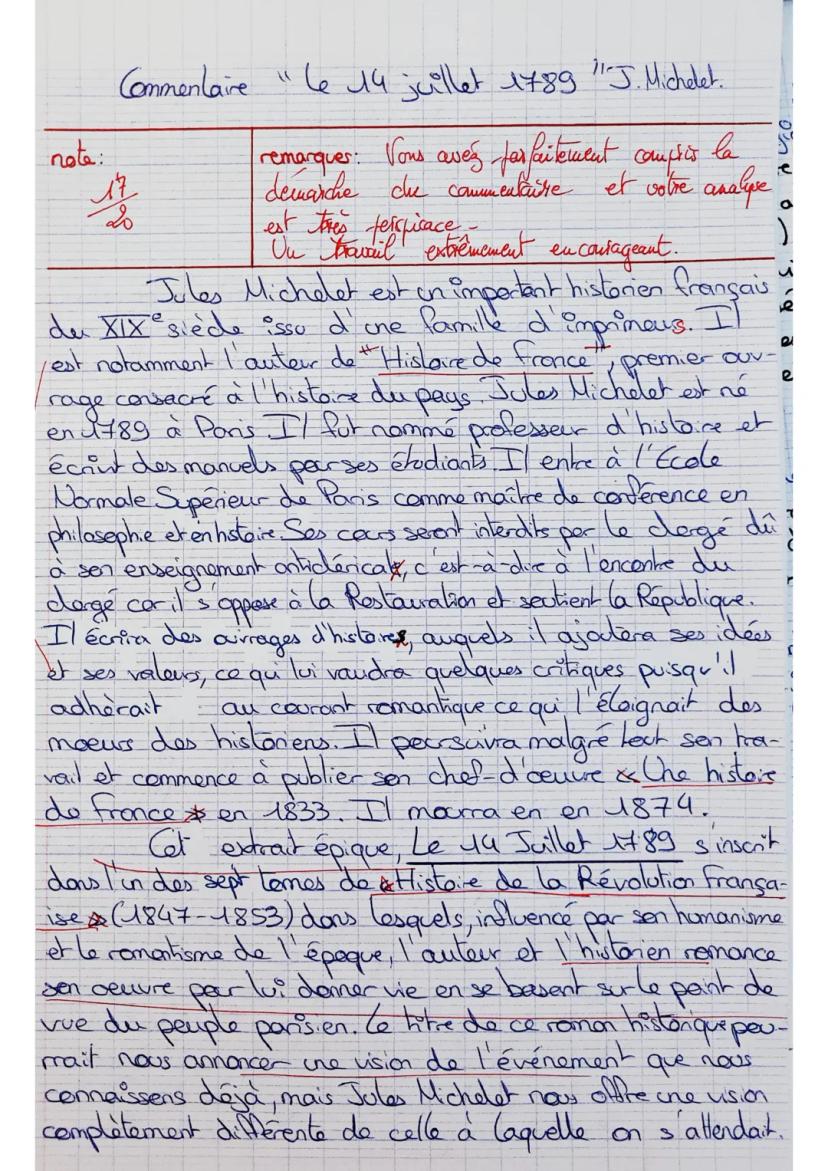 Commentaire "Le 14 juillet 1789" J. Michelet.
note:
17/20
remarques: Vous avez parfaitement compris la
démarche du commentaire et votre analyse
est très perspicace.
Un travail extrêmement encourageant.
Jules Michelet est un important historien français
du XIXe siècle issu d'une famille d'imprimeurs. Il
est notamment l'auteur de "Histoire de france", premier ouv-
rage consacré à l'histoire du pays. Jules Michelet est né
en 1789 à Paris Il fut nommé professeur d'histoire et
écrivit des manuels pour ses étudiants. Il entre à l'Ecole
Normale Supérieur de Paris comme maître de conférence en
philosophie et en histoire. Ses cours seront interdits par le clergé dû
à son enseignement anticlérical, c'est-à-dire à l'encontre du
clergé car il s'oppose à la Restauration et soutient la République.
Il écrira des ouvrages d'histoire, auquels il ajoutera ses idées
et ses valeurs, ce qui lui vaudra quelques critiques puisqu'il
adhèrait au courant romantique ce qui l'éloignait des
moeurs des historiens. Il poursuivra malgré tout son tra-
vail et commence à publier son chef-d'oeuvre « Une histoire
de france » en 1833. Il mourra en en 1874.
Cet extrait épique, Le 14 Juillet 1789 s'inscrit
dans l'un des sept tomes de « Histoire de la Révolution França-
ise » (1847-1853) dans lesquels, influencé par son humanisme
et le romantisme de l'époque, l'auteur et l'historien romance
son oeuvre pour lui donner vie en se basant sur le point de
vue du peuple parisien. Le titre de ce roman historique pou-
rrait nous annoncer une vision de l'événement que nous
connaissons déjà, mais Jules Michelet nous offre une vision
complètement différente de celle à laquelle on s'attendait.